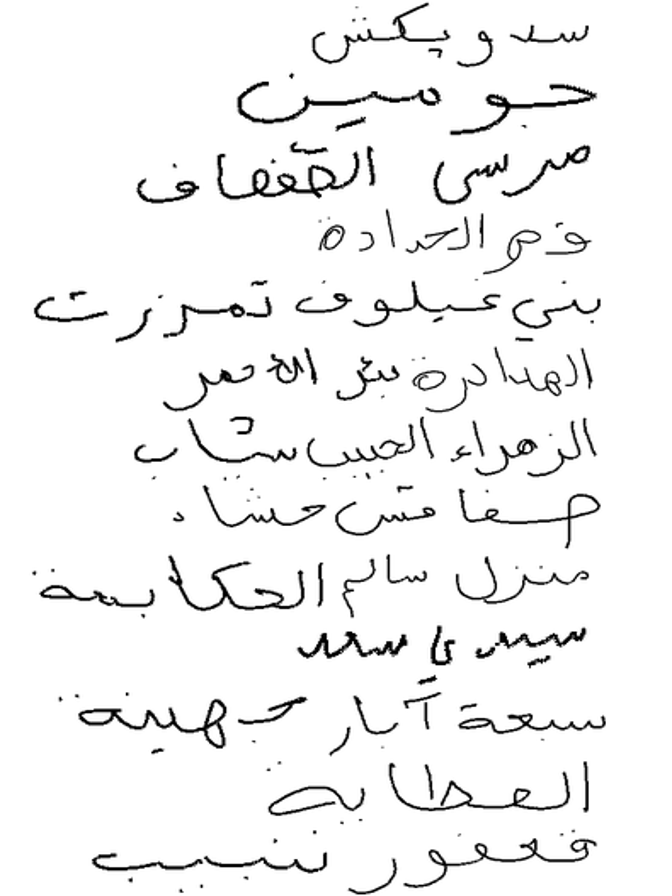 سدويكش
حومين
مرسى القصاف
فم الحدادة
بني غيلوف تمزرت
الهدادرة بئر الأحمر
الزهراء الحبيب ستاب
صفاقس حشاد
منزل سالم الحكايمة
سيدي سعد
سبعة آبار جهينة
العطاية
قعفور شبيب